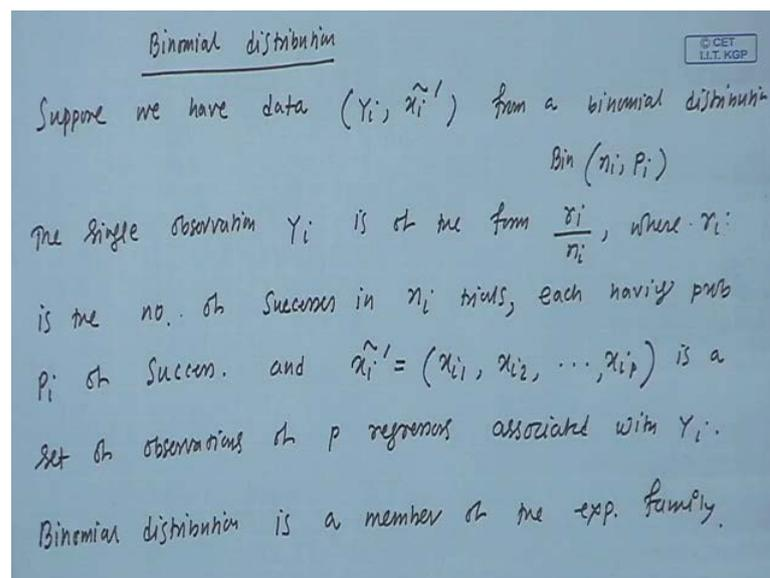 Binomial distribution
© CET
I.I.T. KGP
Suppose we have data (Yᵢ, x̃ᵢ′) from a binomial distribution
Bin (nᵢ, Pᵢ)
The single observation Yᵢ is of the form rᵢ/nᵢ, where rᵢ:
is the no. of successes in nᵢ trials, each having prob
Pᵢ of success. and x̃ᵢ′ = (xᵢ₁, xᵢ₂, ⋯, xᵢₚ) is a
set of observations of p regressors associated with Yᵢ.
Binomial distribution is a member of the exp. family.